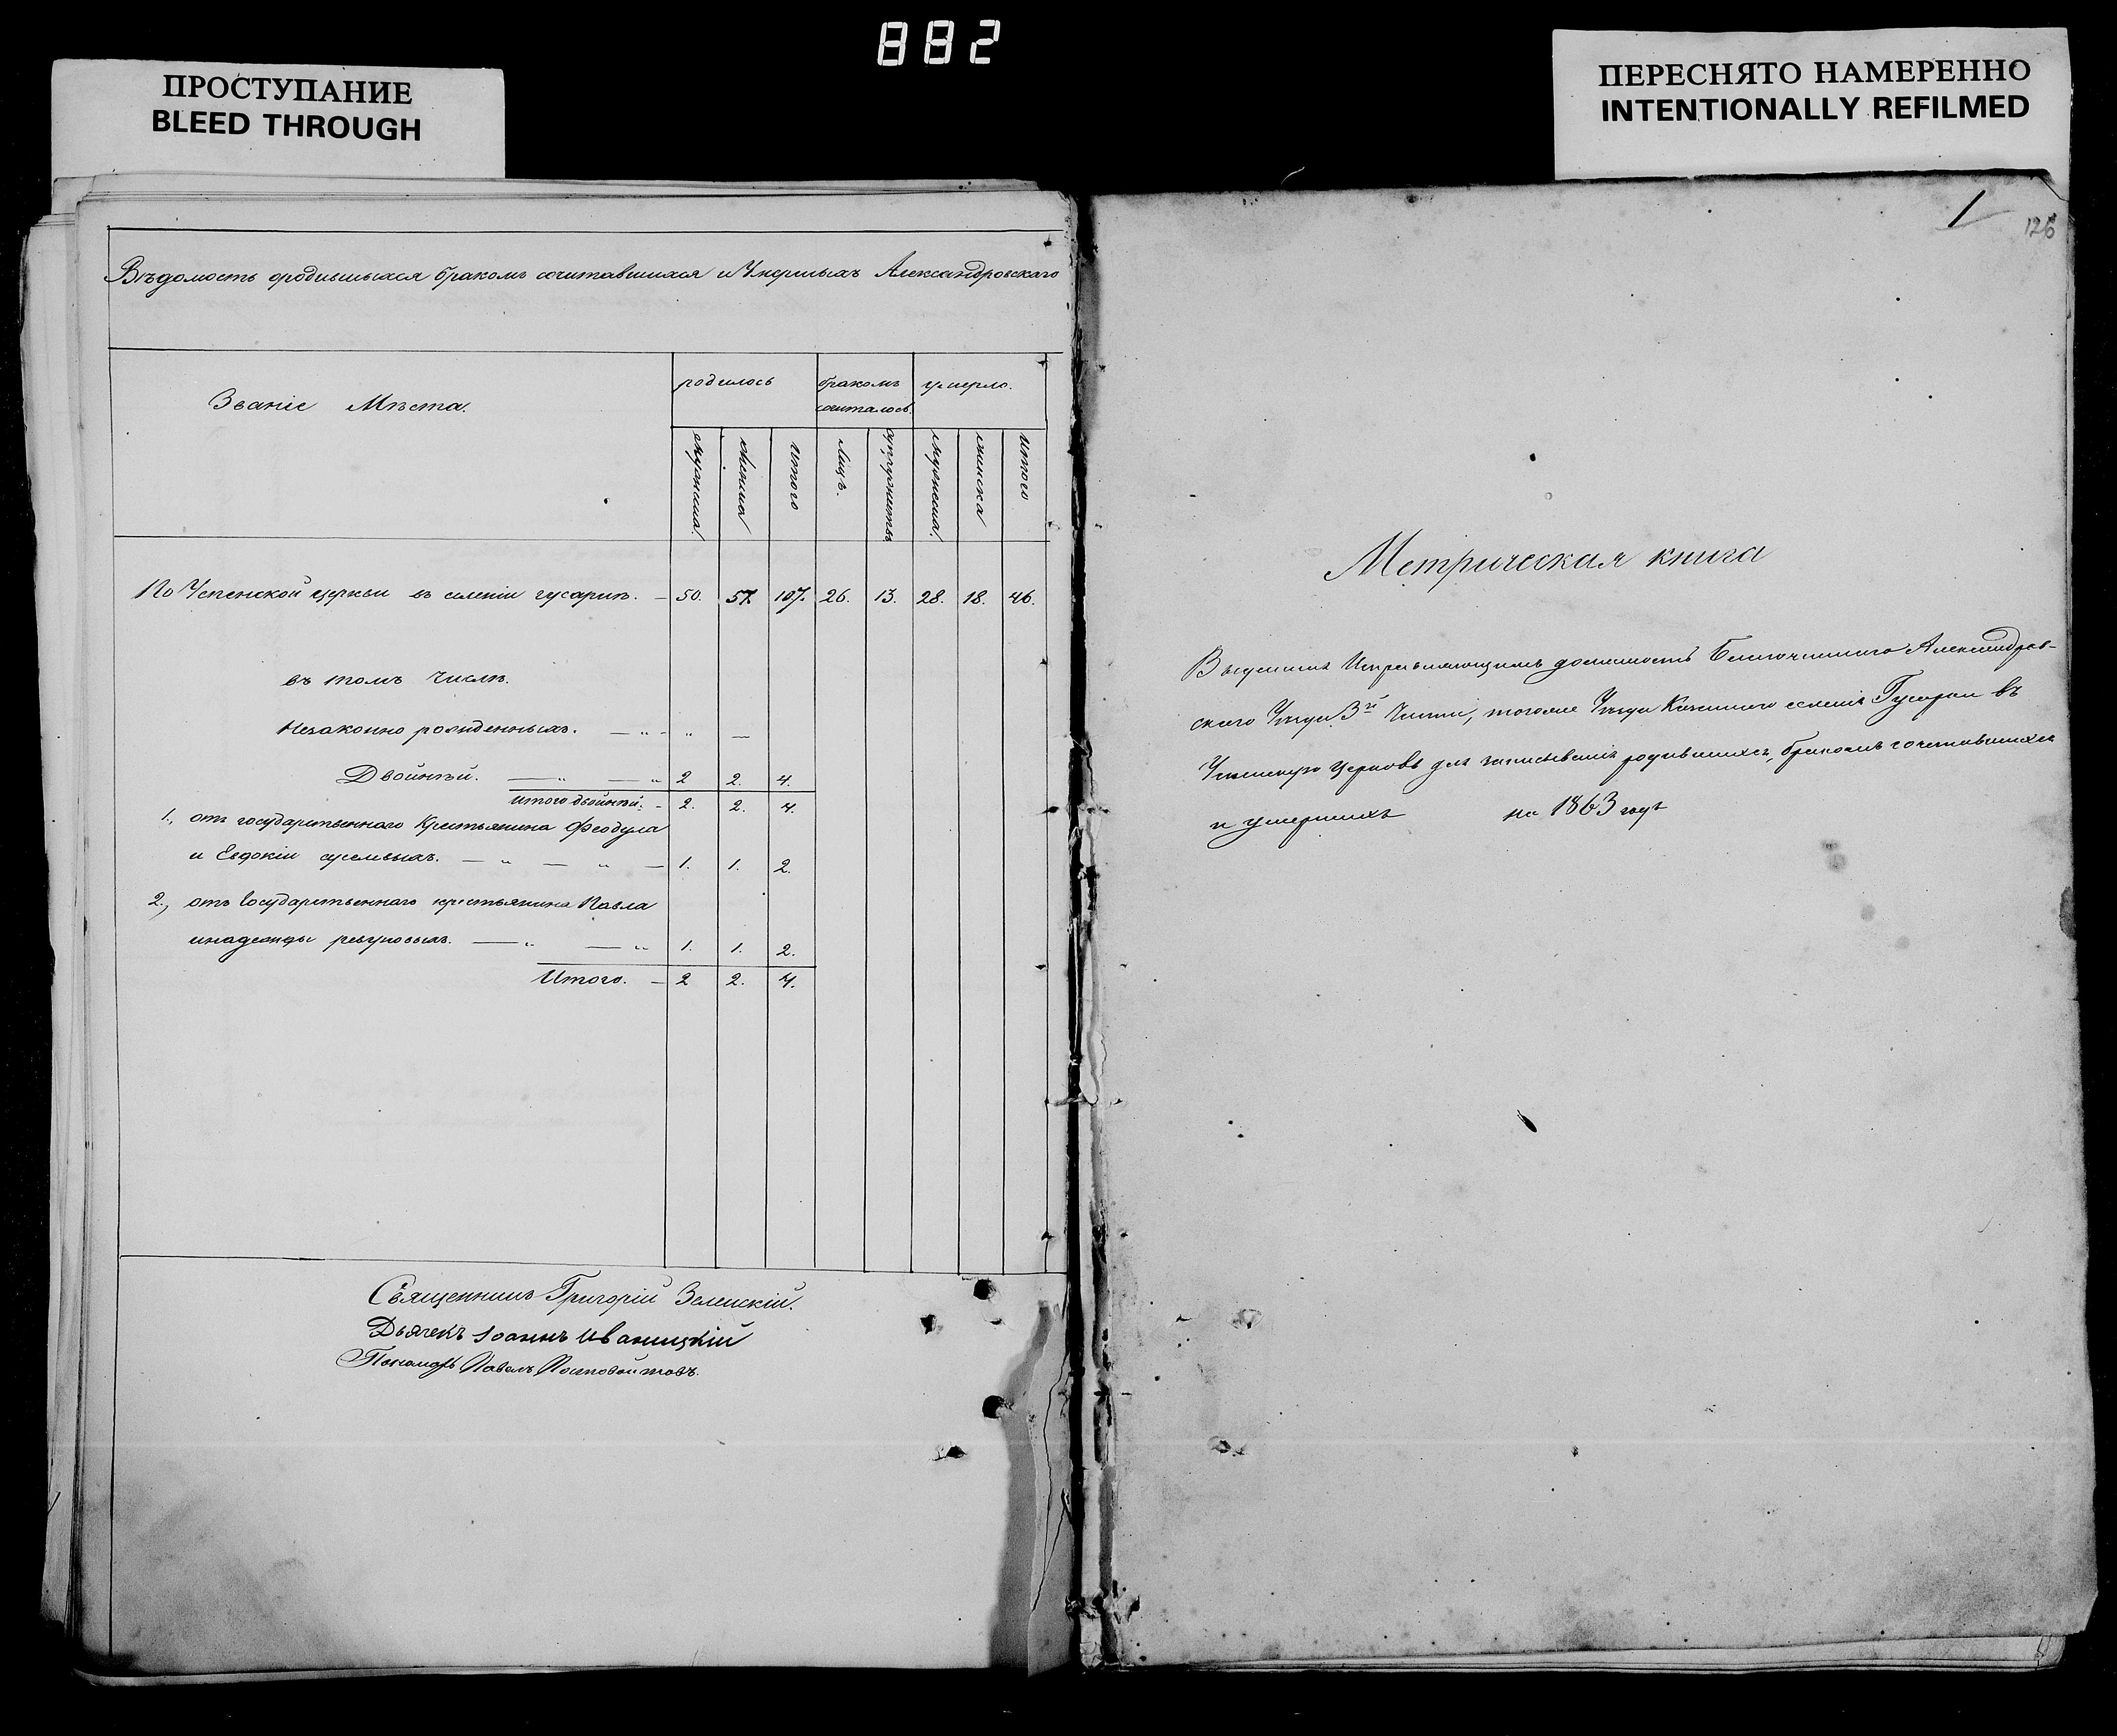 882
ПРОСТУПАНИЕ
BLEED THROUGH
ПЕРЕСНЯТО НАМЕРЕННО
INTENTIONALLY REFILMED
Вѣдомость ородившыхся бракомъ сочитавшихся и Умершыхъ Александровскаго
Званіе Мѣста.
родилось
бракомъ сочиталось.
умерло.
мужеска
женска
итого
лицъ.
супружествъ
мужеска
женска
итого
По Успенской церкви въ селеніи гусарки. — 50. 57. 107. 26. 13. 28. 18. 46.
въ томъ числѣ.
Незаконно рожденныхъ. — „ - „ —
Двойнѣй. — „ — „ 2 2. 4.
итого двойнѣй. - 2. 2. 4.
1., отъ государственнаго Крестьянина Феодула
и Евдокіи — „ — „ — 1. 1. 2.
2., отъ Государственнаго крестьянина Павла
инадежды — „ — „ 1. 1. 2.
Итого. — 2 2. 4.
Священникъ Григорій Зеленскій.
Дьячекъ Іоаннъ Иваницкій
Пономарь Павелъ
1
126
Метрическая книга
Выданная Исправляющимъ должность Благочиннаго Александров-
скаго Уѣзда 3й Части, тогоже Уѣзда Казеннаго селенія Гусарки въ
Успенскую Церковь для записыванія родившихся, бракомъ сочетавшихся
и умершихъ на 1863 годъ